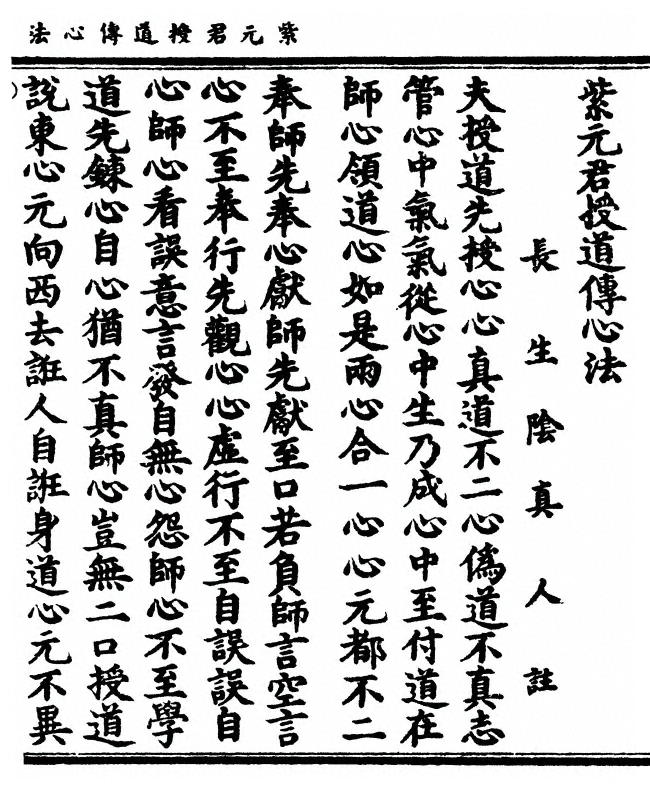 紫元君授道傳心法
紫元君授道傳心法
長生陰真人註
夫授道先授心心真道不二心偽道不真志
管心中氣氣從心中生乃成心中至付道在
師心領道心如是兩心合一心心元都不二
奉師先奉心獻師先獻至口若負師言空言
心不至奉行先觀心心虛行不至自誤誤自
心師心看誤意言發自無心怨師心不至學
道先鍊心自心猶不真師心豈無二口授道
說東心元向西去誑人自誑身道心元不異